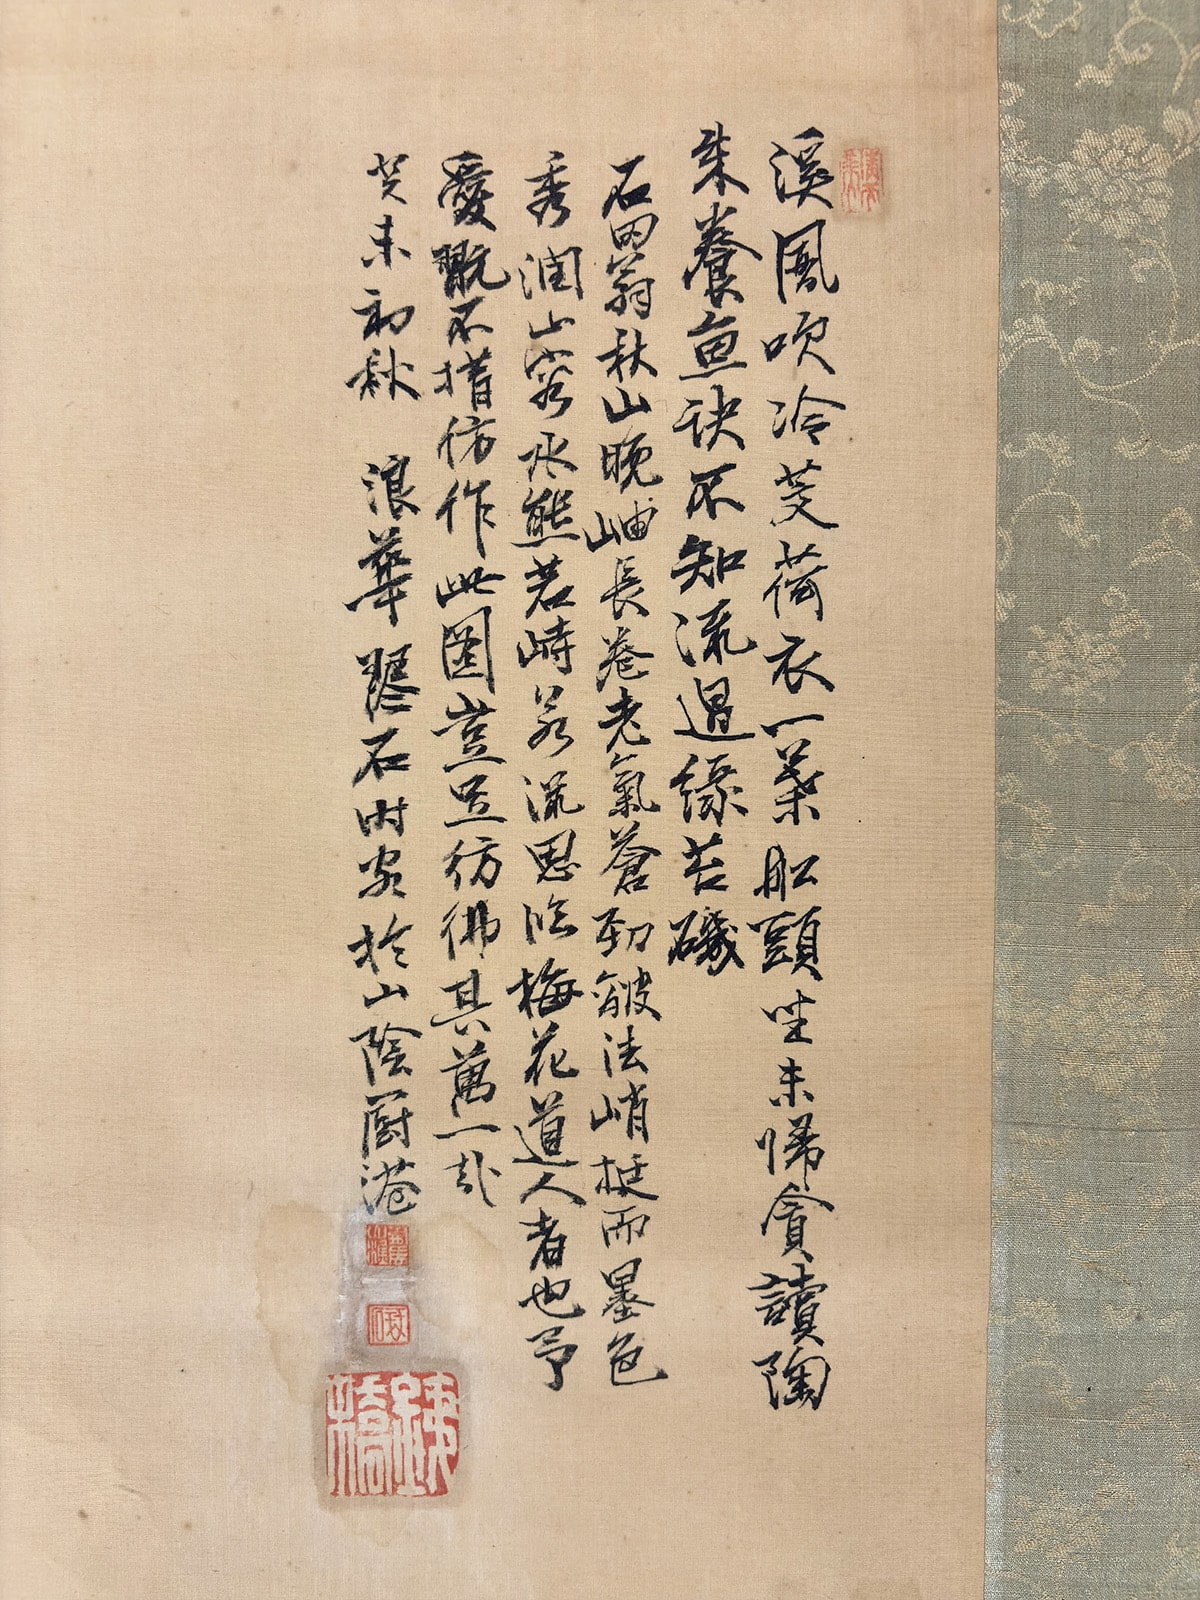 溪風吹冷芰荷衣一葉船頭坐未歸貪讀陶
朱養魚訣不知流過綠苔磯
石田翁秋山晚岫長卷老氣蒼勁皴法峭挺而墨色
秀潤山容水態若峙若流思臨梅花道人者也予
愛翫不措仿作此圖豈足彷彿其萬一哉
癸未初秋 浪華琴石時客於山陰厨港